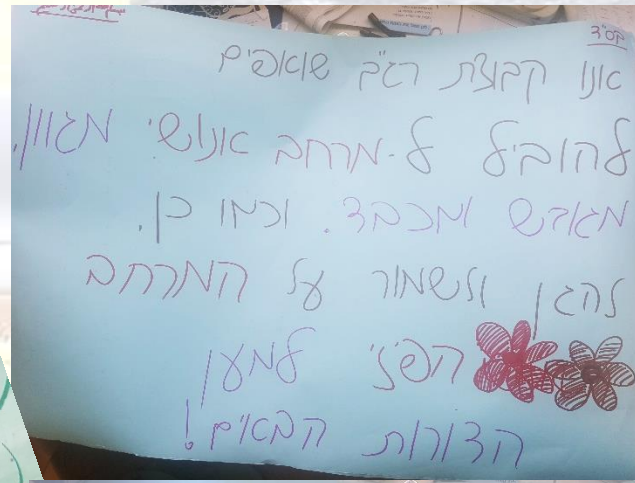 בס"ד
אנו קבוצת רג"ב שואפים
להוביל ל-מרחב אנושי מגוון,
מגובש ומכבד. וכמו כן,
להגן ולשמור על המרחב
הפיזי למען
הדורות הבאים!